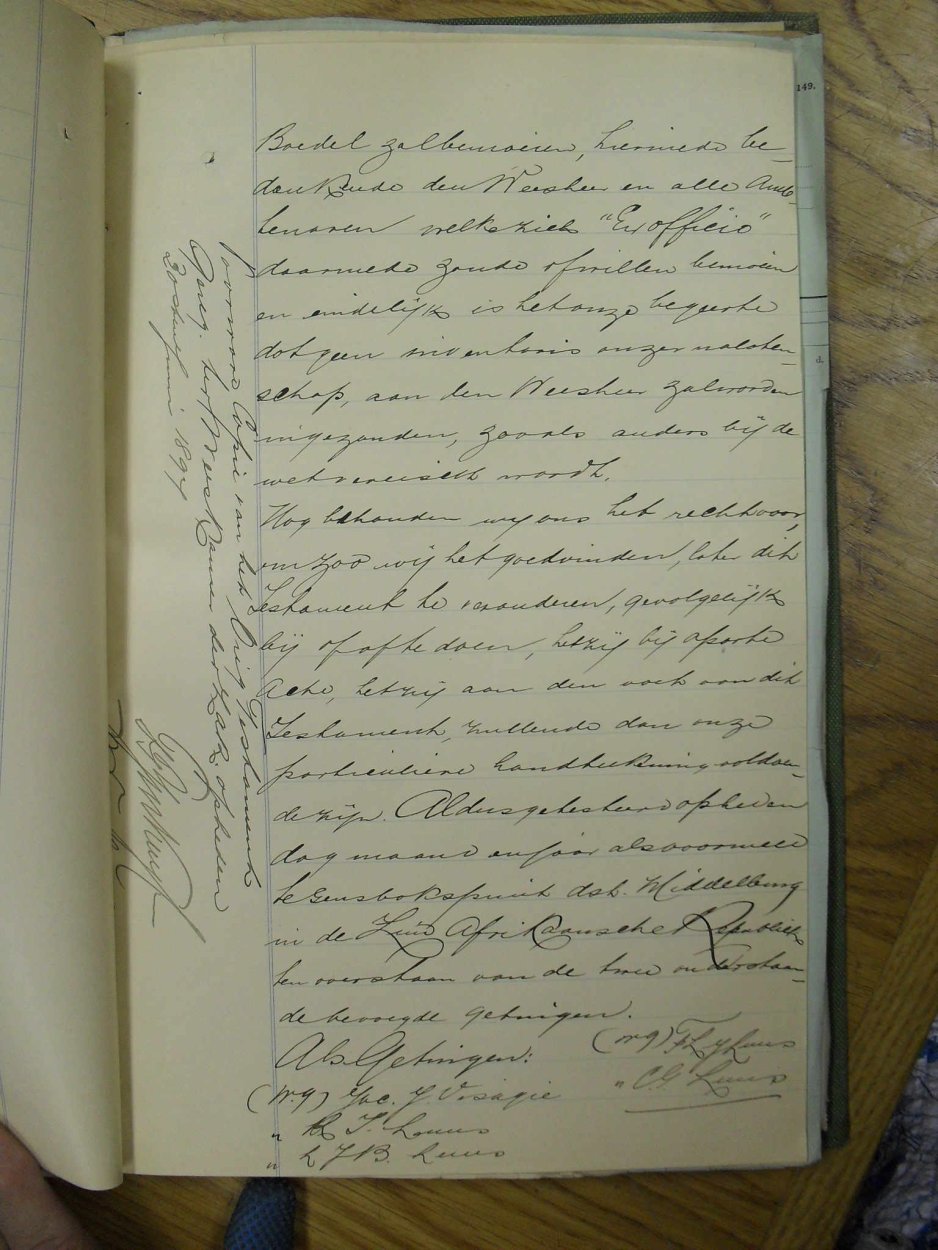 149.
Boedel zal bemoeien, hiermede be-
dankende den Weesheer en alle Amb-
tenaren welke zich "Ex officio"
daarmede zoude of willen bemoeien
en eindelijk is het onze begeerte
dat geen inventaris onzer nalaten-
schap, aan den Weesheer zal worden
ingezonden, zooals anders bij de
wet vereischt wordt.
Nog behouden wij ons het recht voor,
om zoo wij het goedvinden, later dit
Testament te veranderen, gevolgelijk
bij of af te doen, hetzij bij aparte
Acte, hetzij aan den voet van dit
Testament, zullende dan onze
particuliere handteekening voldoen-
de zijn. Aldus getesteerd op heden
dag maand en jaar als voormeld
te Gensbokspunt dst. Middelburg
in de Zuid Afrikaansche Republiek
ten overstaan van de twee onderstaan-
de bevoegde getuigen.
Als Getuigen:
(w.g) Th J Luus
" C. G. Luus
(w.g) Jac. J. Visagie
" J. Luus
" L J B. Luus
voorwaar Copie van het Orig. Testament
Gereg. ter Weeskamer der ZAR. op heden
20 sten Juni 1894
d.